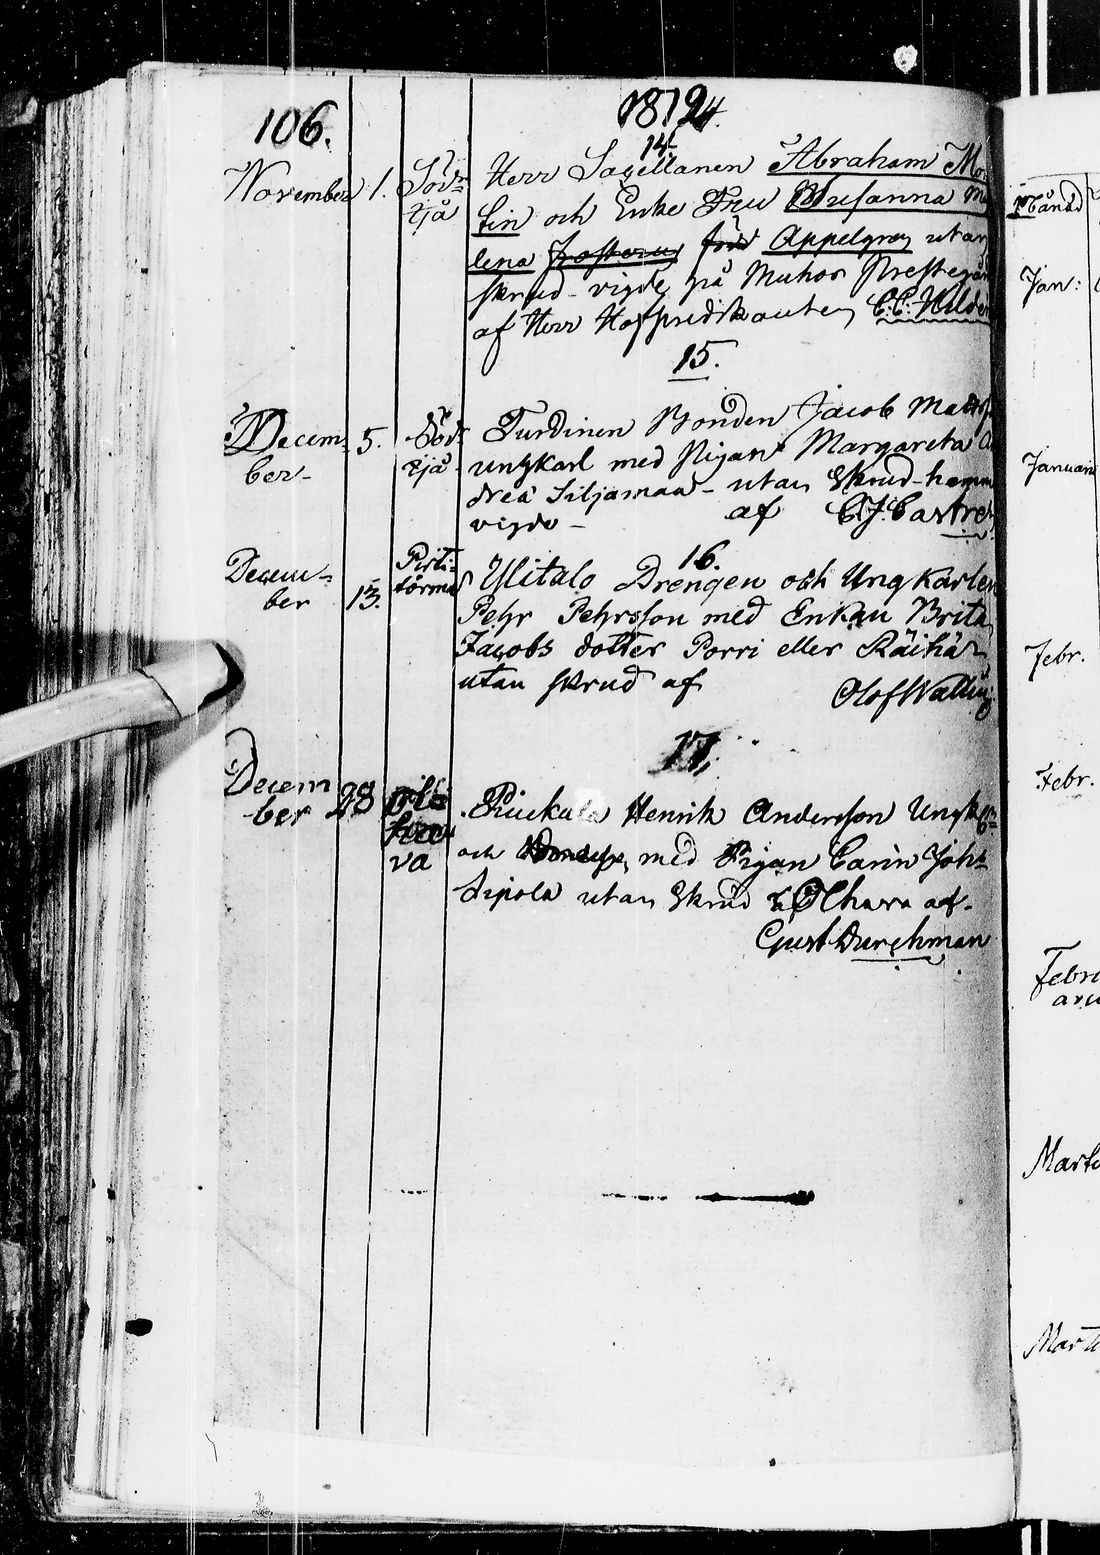 106.
1824.
14.
November 1. Söd=
rjå
Herr Sacellanen Abraham Mo
lin och Enke Fru Susanna Ma
lena född Appelgren utan
skrud vigde på Muhos Prestegår
af Herr Hofpredikanten C.C. Hilde
15.
Decem=
ber- 5. Söd=
rjå
Turdinen Bonden Jacob Matts
ungkarl med Pigan Margareta An
dreæ Siljamaa - utan Skrud hemma
vigde - af C.J. Castre
16.
Decem=
ber 13. Pirti=
törmä
Ylitalo Drengen och Ungkarlen
Pehr Pehrsson med Enkan Brita
Jacobs dotter Porri eller Räihä
utan skrud af Olof Wallin
17.
Decem
ber 28
va
Henrik Andersson Ungk
och med Pigan Carin Joh=
Sipola utan Skrud af
Gust Durchman
Månad
Jan:
Januari
Febr.
Febr.
Febru
aru
Marti
Marti